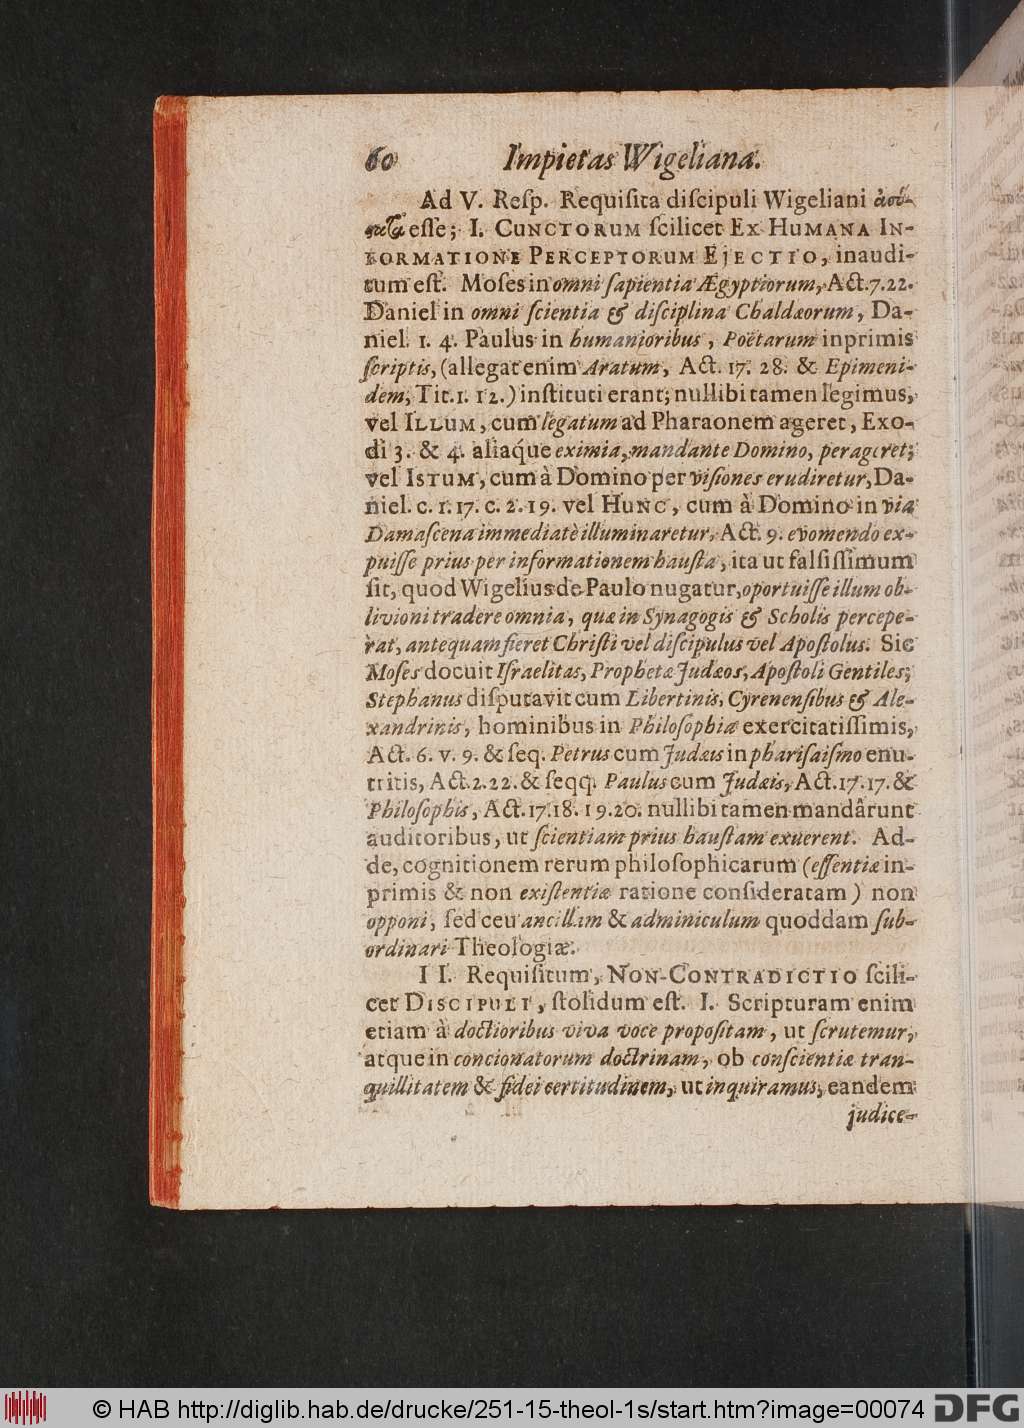 60 Impietas Wigeliana.
Ad V. Reſp. Requiſita diſcipuli Wigeliani ἀσύ-
ϛατα eſſe; I. CUNCTORUM ſcilicet EX HUMANA IN-
FORMATIONE PERCEPTORUM EJECTIO, inaudi-
tum eſt. Moſes in omni ſapientia Ægyptiorum, Act. 7. 22.
Daniel in omni ſcientia & diſciplina Chaldæorum, Da-
niel. 1. 4. Paulus in humanioribus, Poëtarum inprimis
ſcriptis, (allegat enim Aratum, Act. 17. 28. & Epimeni-
dem, Tit. 1. 12.) inſtituti erant; nullibi tamen legimus,
vel ILLUM, cum legatum ad Pharaonem ageret, Exo-
di 3. & 4. aliaq́ue eximia, mandante Domino, perageret;
vel ISTUM, cum à Domino per viſiones erudiretur, Da-
niel. c. 1. 17. c. 2. 19. vel HUNC, cum à Domino in via
Damaſcena immediatè illuminaretur, Act. 9. evomendo ex-
puiſſe prius per informationem hauſta, ita ut falſiſſimum
ſit, quod Wigelius de Paulo nugatur, oportuiſſe illum ob-
livioni tradere omnia, quæ in Synagogis & Scholis percepe-
rat, antequam fieret Chriſti vel diſcipulus vel Apoſtolus. Sic
Moſes docuit Iſraelitas, Prophetæ Judæos, Apoſtoli Gentiles;
Stephanus diſputavit cum Libertinis, Cyrenenſibus & Ale-
xandrinis, hominibus in Philoſophia exercitatiſſimis,
Act. 6. v. 9. & ſeq. Petrus cum Judæis in phariſaiſmo enu-
tritis, Act. 2. 22. & ſeqq. Paulus cum Judæis, Act. 17. 17. &
Philoſophis, Act. 17. 18. 19. 20. nullibi tamen mandârunt
auditoribus, ut ſcientiam prius hauſtam exuerent. Ad-
de, cognitionem rerum philoſophicarum (eſſentiæ in-
primis & non exiſtentiæ ratione conſideratam) non
opponi, ſed ceu ancillam & adminiculum quoddam ſub-
ordinari Theologiæ.
II. Requiſitum, NON-CONTRADICTIO ſcili-
cet DISCIPULI, ſtolidum eſt. I. Scripturam enim
etiam à doctioribus viva voce propoſitam, ut ſcrutemur,
atque in concionatorum doctrinam, ob conſcientiæ tran-
quillitatem & fidei certitudinem, ut inquiramus, eandem
judice-
© HAB http://diglib.hab.de/drucke/251-15-theol-1s/start.htm?image=00074
DFG